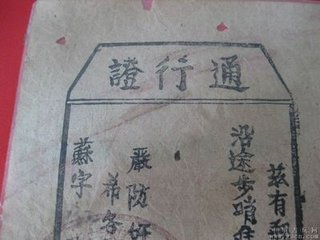 通行證
茲有
沿途步哨
嚴防奸
希各
蘇字